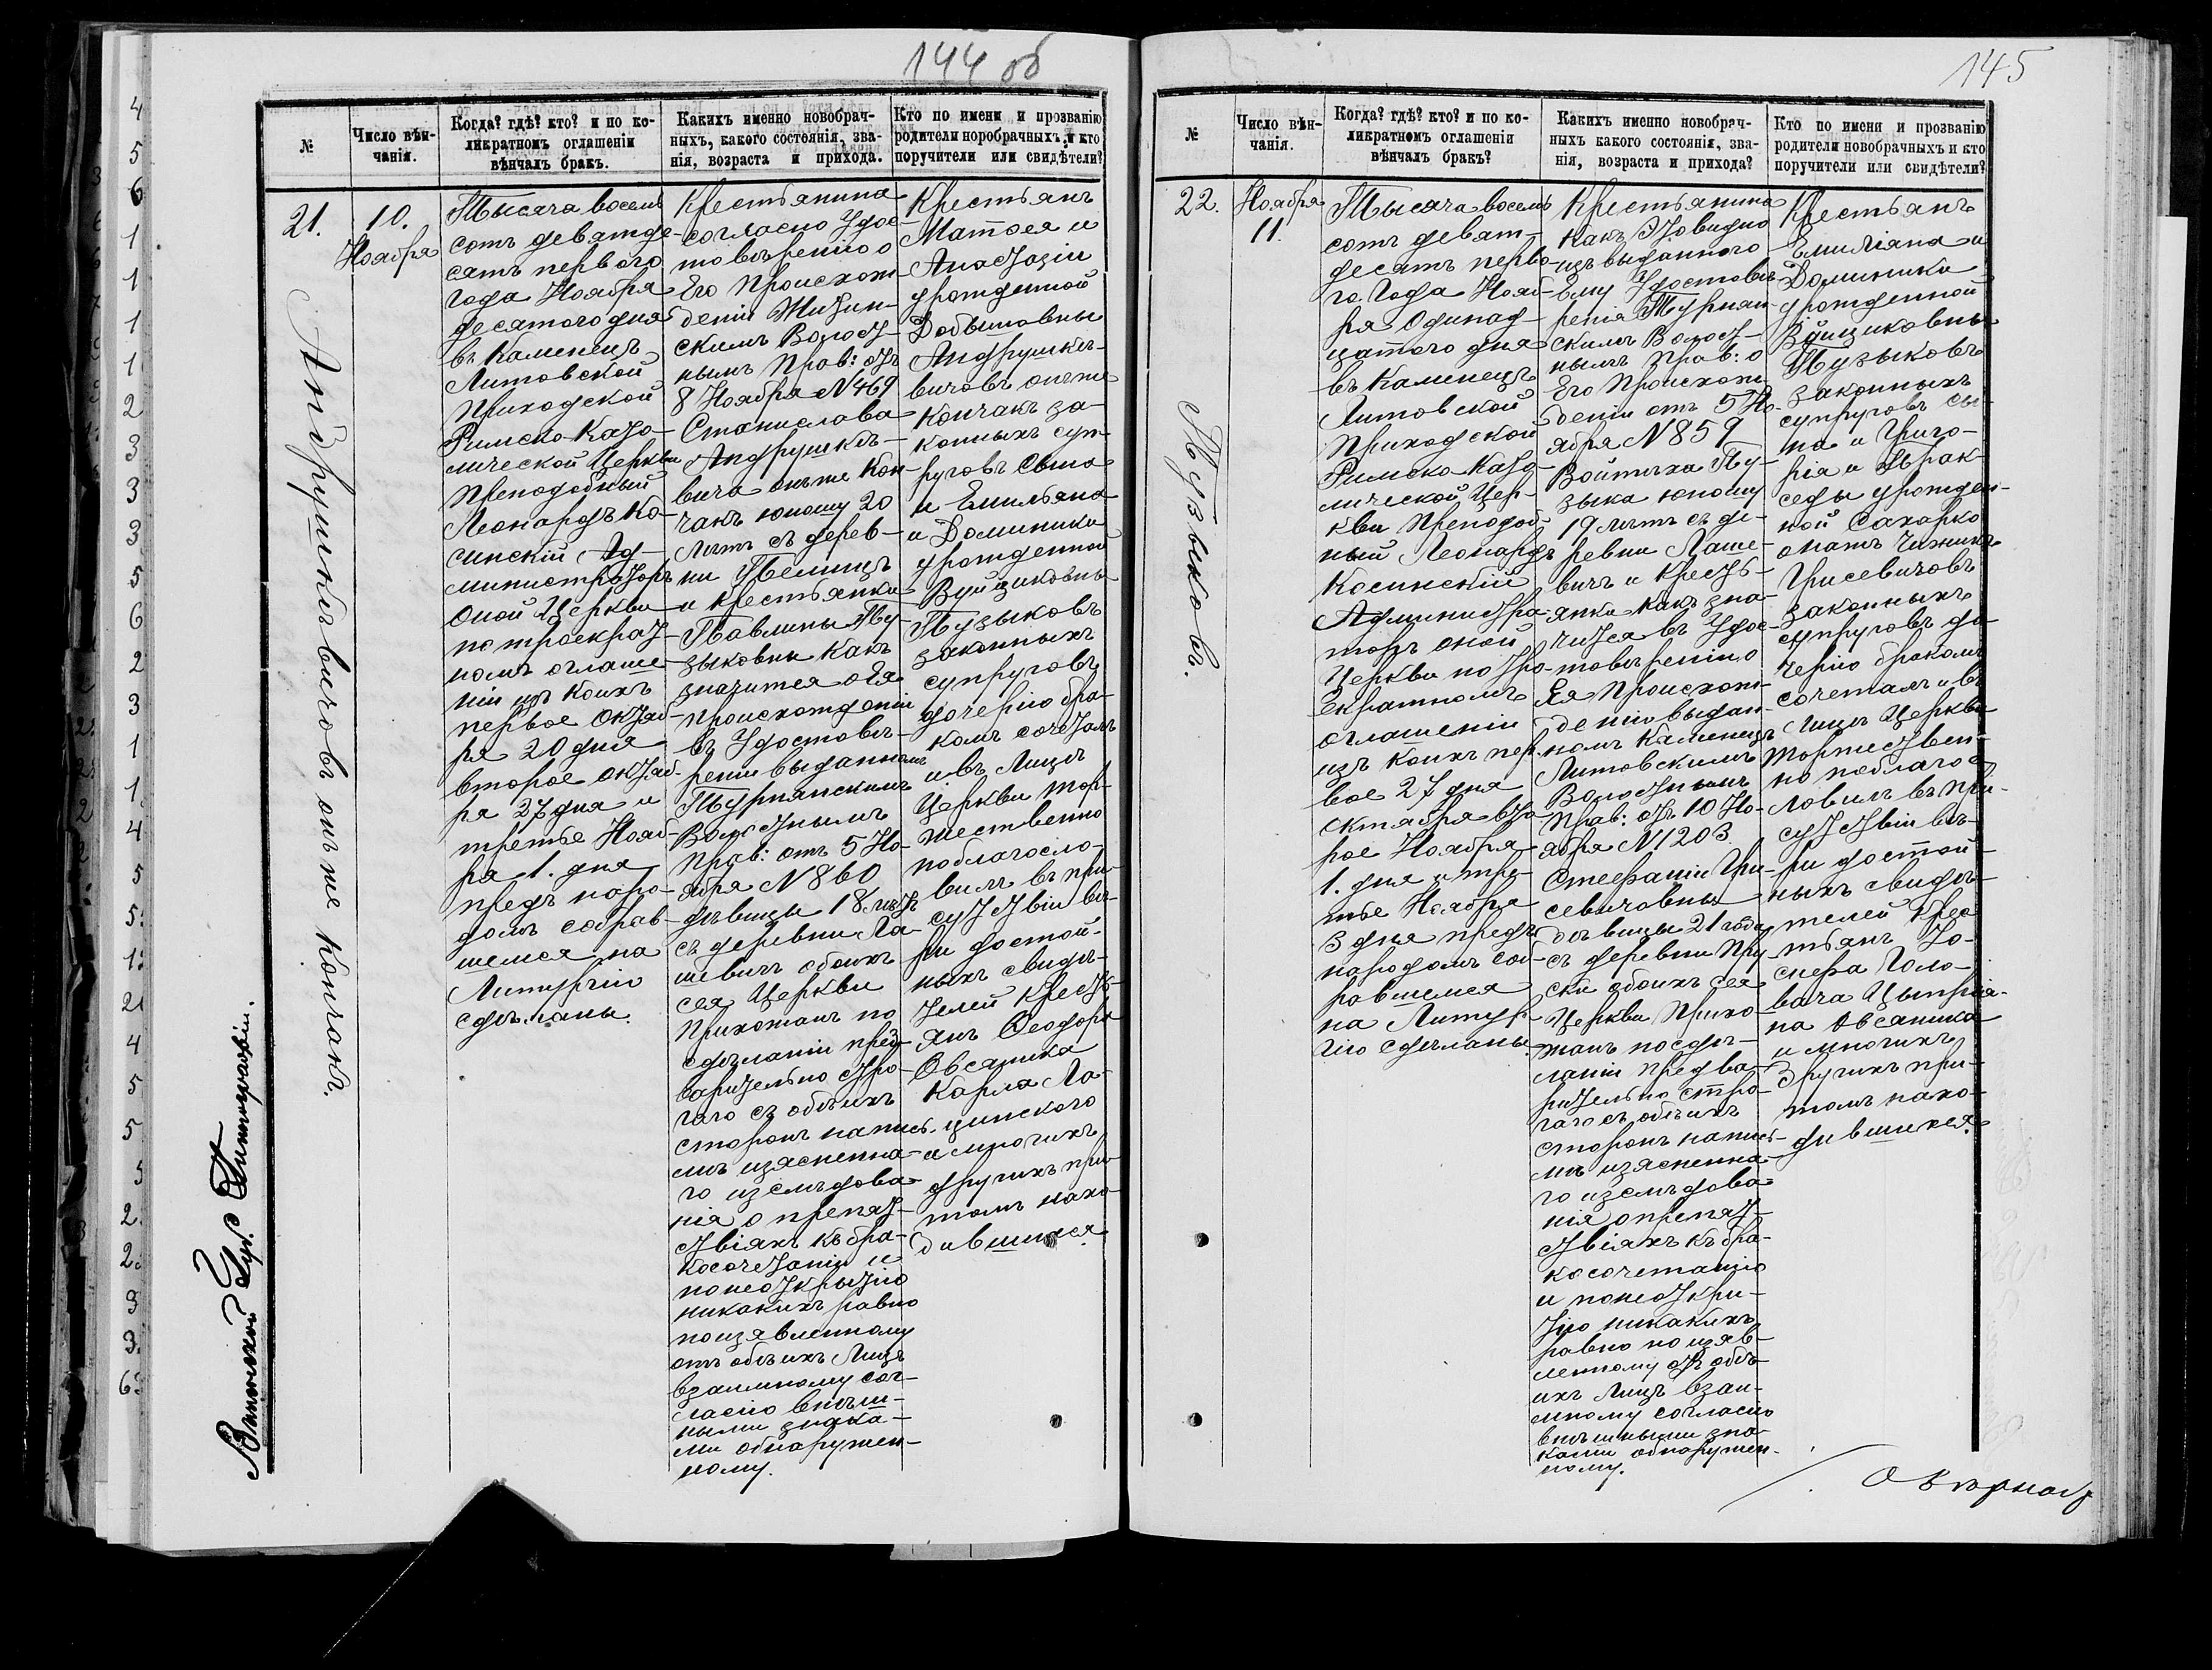 144 об
№
Число вѣн-
чанія.
Когда? гдѣ? кто? и по ко-
ликратномъ оглашеніи
вѣнчалъ бракъ.
Какихъ именно новобрач-
ныхъ, какого состоянія, зва-
нія, возраста и прихода.
Кто по имени и прозванію
родители норобрачныхъ и кто
поручители или свидѣтели?
21.
10.
Ноября
Андрушкѣвичовъ онъ же Кончакъ.
Тысяча восемь
сотъ девятде-
сятъ перваго
года Ноября
десятого дня
въ Каменецъ
Литовской
Приходской
Римско Като-
лической Церкви
Преподобный
Леонардъ Ко-
синскій Ад-
министраторъ
оной Церкви
по троекрат-
номъ оглаше-
ніи изъ коихъ
первое Октяб-
ря 20 дня
второе Октяб-
ря 27 дня и
третье Нояб-
ря 1. дня
предъ наро-
домъ собрав-
шемся на
Литургію
сдѣланы.
Крестьянина
согласно Удос-
товѣренію о
Его Происхож-
деніи
скимъ Волост-
нымъ Прав: отъ
8 Ноября №469
Станислава
Андрушкѣ-
вича онъ же Кон-
чакъ юношу 20
лѣтъ съ дерев-
ни Пелищъ
и Крестьянки
Павлины Пу-
зыковны какъ
значится о Ея
происхожденіи
въ Удостовѣ-
реніи выданномъ
Турнянскимъ
Волостнымъ
Прав: отъ 5 Но-
ября №860
дѣвицы 18 лѣтъ
съ деревни Ла-
шевичъ обоихъ
сея Церкви
Прихожанъ по
сдѣланіи пред-
варительно стро-
гаго съ обѣихъ
сторонъ на письмѣ
изясненна-
го изслѣдова-
нія о препят-
ствіяхъ къ бра-
косочетанію и
по неоткрытію
никакихъ равно
по изявленному
отъ обѣихъ лицъ
взаимному сог-
ласію внѣш-
ными знака-
ми обнаружен-
ному.
Крестьянъ
Матѳея и
Анастазіи
урожденной
Добышовны
Андрушкѣ-
вичовъ онъ же
Кончакъ за-
конныхъ суп-
руговъ сына
и Емильяна
и Доминики
урожденной
Вуйциковны
Пузыковъ
законныхъ
супруговъ
дочерію бра-
комъ сочеталъ
и въ лицѣ
Церкви тор-
жественно
поблагосло-
вилъ въ при-
сутствіи вѣ-
ри достой-
ныхъ свидѣ-
телей Кресть-
янъ Ѳеодора
Овсяника
Карла Ла-
щинского
и многихъ
другихъ при-
томъ нахо-
дившихся.
Виленской Губ. Типографіи.
145
№
Число вѣн-
чанія.
Когда? гдѣ? кто? и по ко-
ликратномъ оглашеніи
вѣнчалъ бракъ?
Какихъ именно новобрач-
ныхъ какого состоянія, зва-
нія, возраста и прихода?
Кто по имени и прозванію
родители новобрачныхъ и кто
поручители или свидѣтели?
22.
Ноября
11.
Пузыковъ.
Тысяча восемь
сотъ девят-
десятъ перва-
го года Нояб-
ря одинад-
цатого дня
въ Каменецъ
Литовской
Приходской
Римско Като-
лической Цер-
кви Преподоб-
ный Леонардъ
Косинскій
Администра-
торъ оной
Церкви по тро-
екратномъ
оглашеніи
изъ коихъ пер-
вое 27 дня
Октября вто-
рое Ноября
1. дня и тре-
тье Ноября
3 дня предъ
народомъ соб-
равшемся
на Литур-
гію сдѣланы.
Крестьянина
какъ Это видно
изъ выданного
Ему Удостовѣ-
ренія Турнян-
скимъ Волост-
нымъ Прав: о
Его Происхож-
деніи отъ 5 Но-
ября №859
Войтѣха Пу-
зыка юношу
19 лѣтъ съ де-
ревни Лаше-
вичъ и Кресть-
янки какъ зна-
чится въ Удос-
товѣреніи о
Ея Происхож-
деніи выдан-
номъ Каменецъ
Литовскимъ
Волостнымъ
Прав: отъ 10 Но-
ября №1203
Стефаніи Гри-
севичовны
дѣвицы 21 года
съ деревни Пру-
ски обоихъ сея
Церкви Прихо-
жанъ по сдѣ-
ланіи предва-
рительно стро-
гаго съ обѣихъ
сторонъ на пись-
мѣ изясненна-
го изслѣдова-
нія о препят-
ствіяхъ къ бра-
косочетанію
и по неоткры-
тію никакихъ
равно по изяв-
ленному отъ обѣ-
ихъ лицъ взаи-
мному согласію
внѣшными зна-
ками обнаружен-
ному.
Крестьянъ
Емиліяна и
Доминики
урожденной
Вуйциковны
Пузыковъ
законныхъ
супруговъ сы-
на и Григо-
рія и Ѳрак-
седы урожден-
ной Сахарко
онажъ Чижикъ
Грисевичовъ
законныхъ
супруговъ до-
черію бракомъ
сочеталъ и въ
лицѣ Церкви
торжествен-
но поблагос-
ловилъ въ при-
сутствіи вѣ-
ри достой-
ныхъ свидѣ-
телей Крес-
тьянъ Іо-
Голо-
вача Цыпріа-
на Овсяника
и многихъ
другихъ при-
томъ нахо-
дившихся.